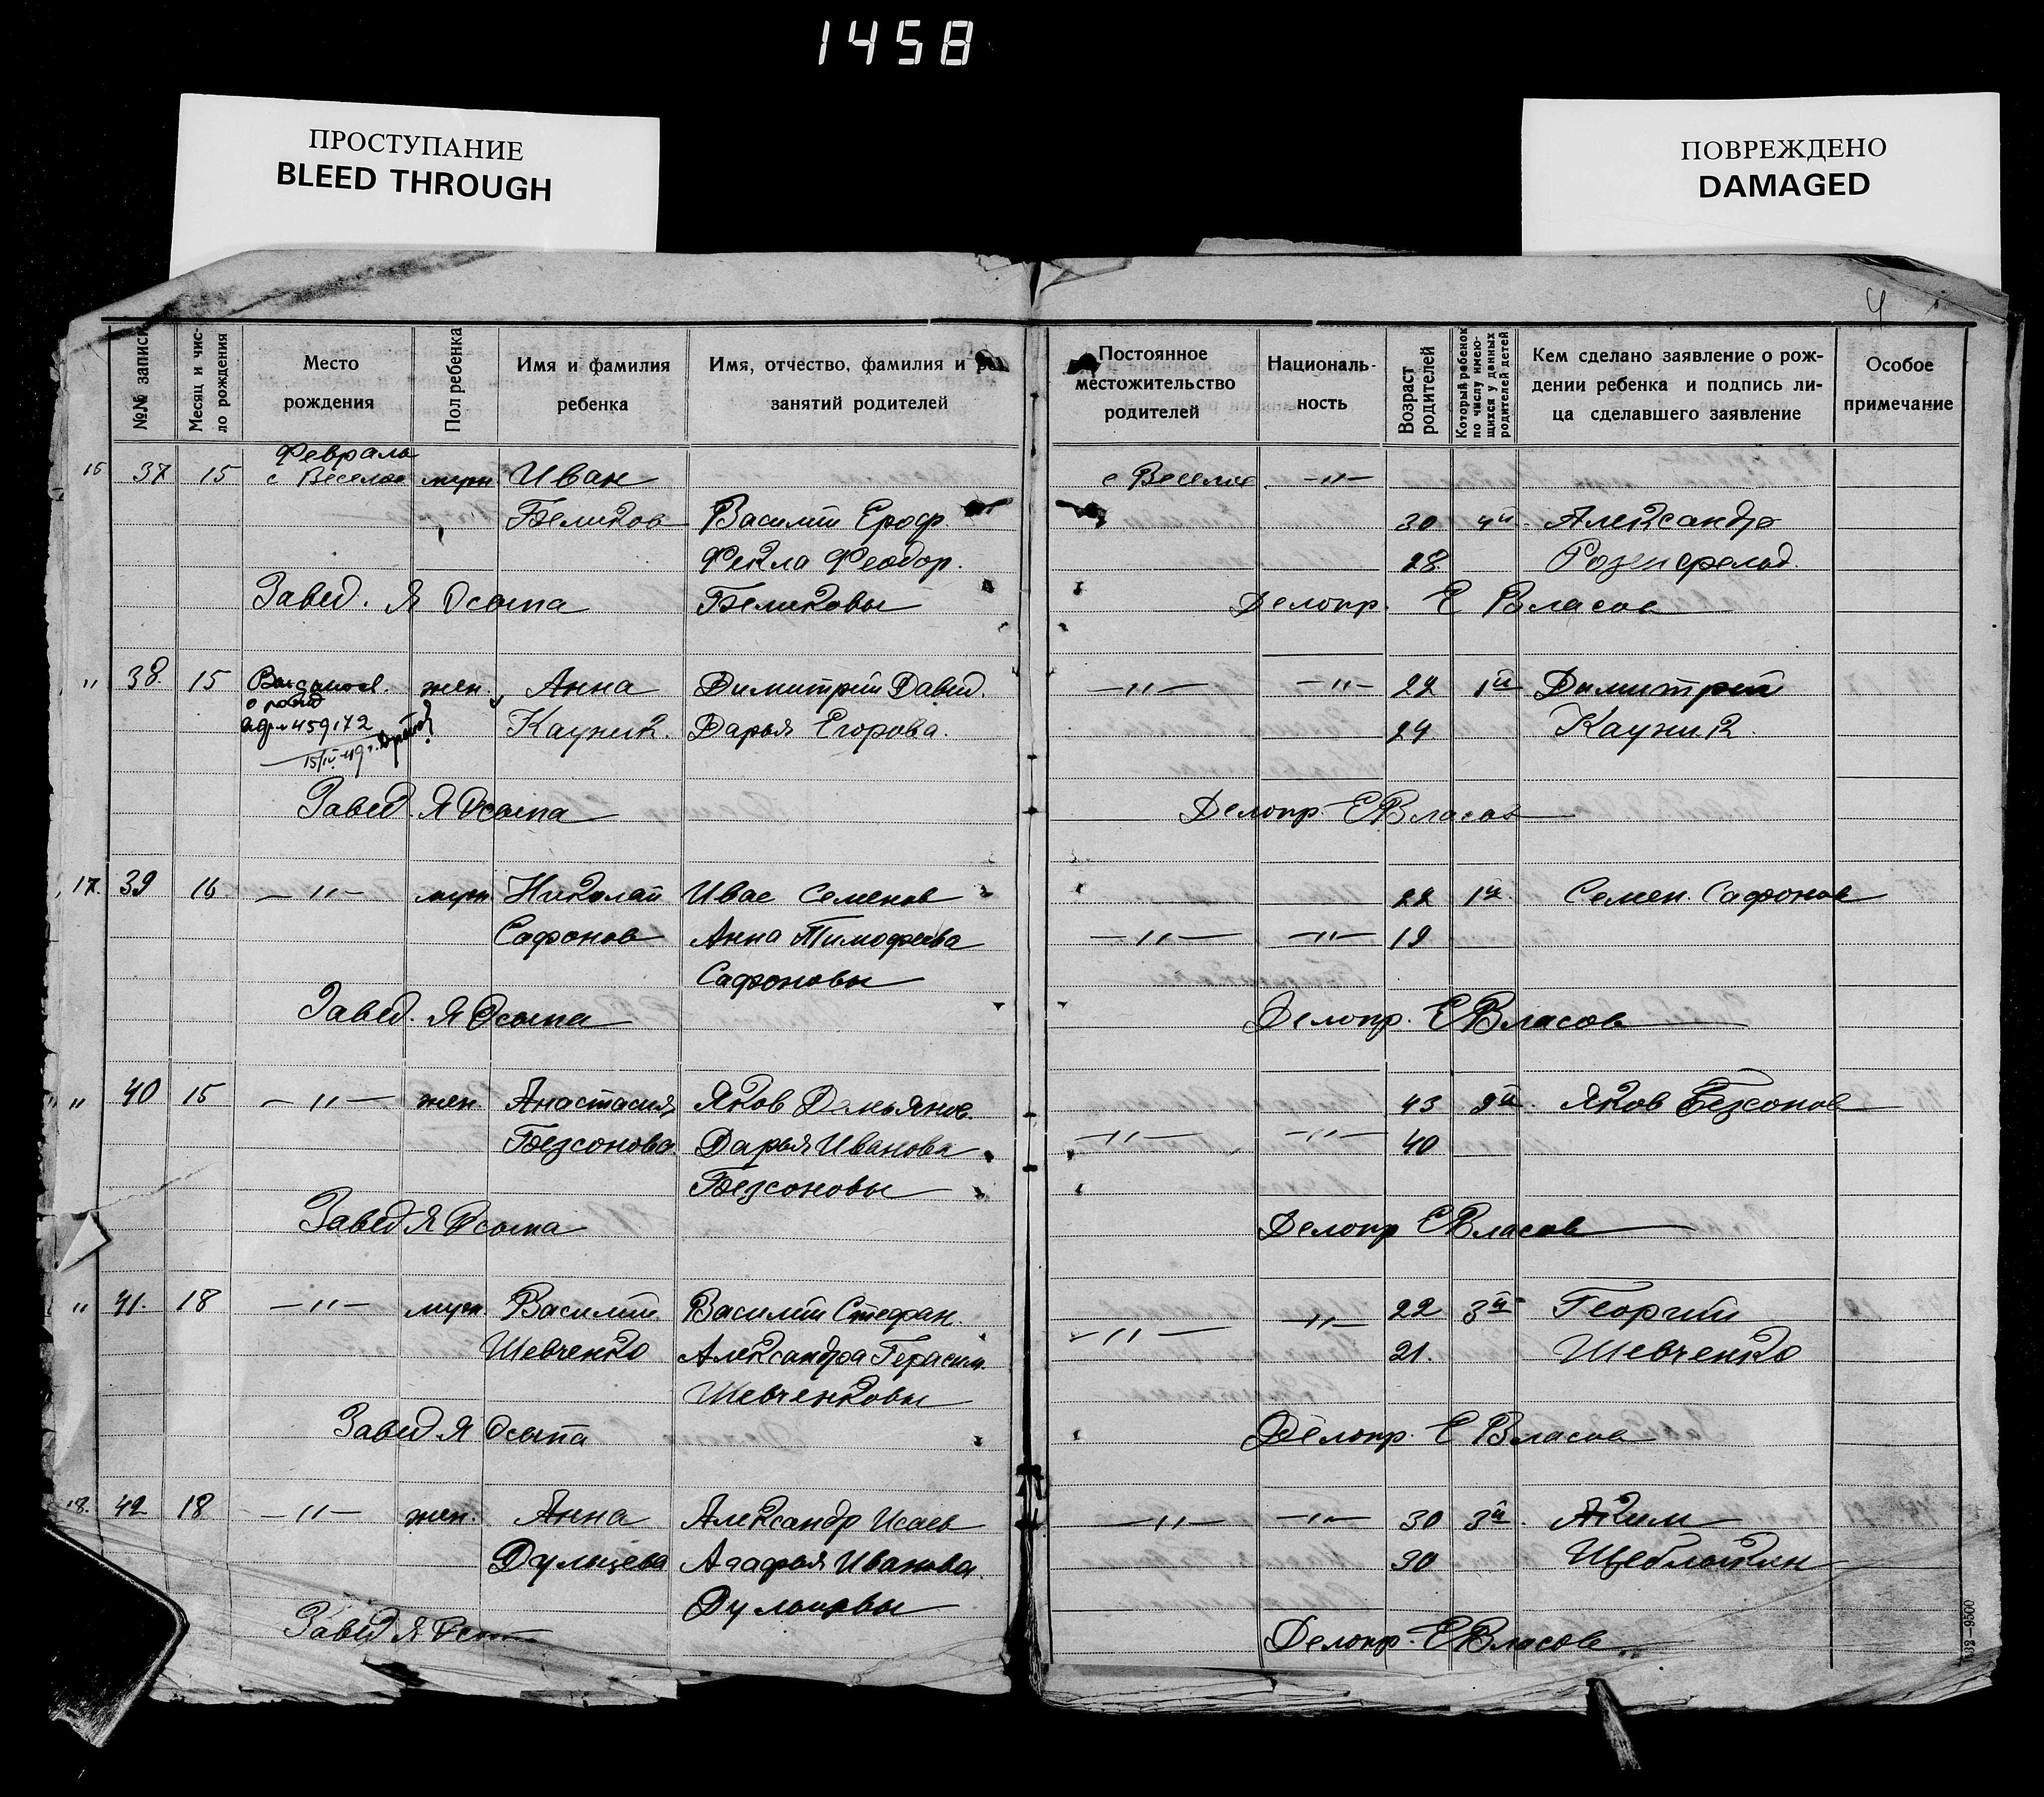 1458
ПРОСТУПАНИЕ
BLEED THROUGH
ПОВРЕЖДЕНО
DAMAGED
4
№№ записи
Месяц и чис-
ло рождения
Место
рождения
Пол ребенка
Имя и фамилия
ребенка
Имя, отчество, фамилия и ро
занятий родителей
Постоянное
местожительство
родителей
Националь-
ность
Возраст
родителей
Который ребенок
по числу имею-
щихся у данных
родителей детей
Кем сделано заявление о рож-
дении ребенка и подпись ли-
ца сделавшего заявление
Особое
примечание
Февраль
16 37 15 с Веселое муж Иван с Веселое -"-
Беликов Василий Ероф. 30 4й Александр
Фекла Феодор. 28 Розенфельд.
Завед. Я Осыпа Беликовы Делопр. Е Власов
" 38 15 жен. Анна Димитрий Давид. -"- -"- 22 1й Димитрий
о рожд
459172 Каузик. Дарья Егорова. 24 Каузик.
15/IV-49г.
Завед. Я Осыпа Делопр. Е Власов
17. 39 16 -"- муж. Николай Иван Семенов 22 1й Семен. Сафонов
Сафонов Анна Тимофеева -"- -"- 19
Сафоновы
Завед. Я Осыпа Делопр. Е Власов
" 40 15 -"- жен. Анастасия Яков Демьянов. 43 9й Яков Безсонов
Безсонова. Дарья Иванова -"- -"- 40
Безсоновы
Завед Я Осыпа Делопр Е Власов
" 41. 18 -"- муж Василий Василий Стефан. -"- -"- 22 3й Георгий
Шевченко Александра Герасим. 21. Шевченко
Шевченковы
Завед Я Осыпа Делопр. Е Власов
18. 42 18 -"- жен. Анна Александр Исаев -"- -"- 30 3й Аким
Дульцева Агафья Иванова. 30 Щеблыкин
Дульцевы
Завед Я Осып Делопр. Е Власов
532—9500